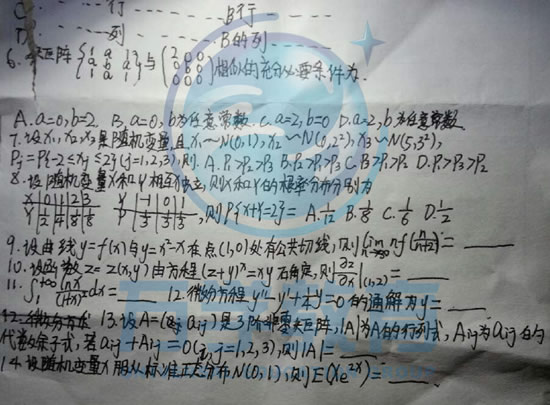 C. 行 B行
D. 列 B的列
6. 矩阵 {1 a 1 a b a 1 a 1} 与 {2 0 0 0 b 0 0 0 0} 相似的充分必要条件为.
A. a=0,b=2 B. a=0,b为任意常数 C. a=2,b=0 D. a=2,b为任意常数
7. 设X1,X2,X3是随机变量,且X1~N(0,1), X2~N(0,2²), X3~N(5,3²),
Pj=P{-2≤Xj≤2}(j=1,2,3),则. A. P1>P2>P3 B. P2>P1>P3 C. P3>P1>P2 D. P1>P3>P2
8. 设随机变量X和Y相互独立,则X和Y的概率分布分别为
X 0 1 2 3 Y -1 0 1
P 1/2 1/4 1/8 1/8 P 1/3 1/3 1/3 ,则P{X+Y=2}= A. 1/12 B. 1/8 C. 1/6 D. 1/2
9. 设曲线y=f(x)与y=x²-x在点(1,0)处有公共切线,则lim n→∞ nf(n/(n+2))=
10. 设函数z=z(x,y)由方程(z+y)^x=xy确定,则∂z/∂x|(1,2)=
11. ∫1 +∞ lnx/(1+x)² dx= 12. 微分方程y''-y'+1/4y=0的通解为y=
13. 设A=(aij)是3阶非零矩阵,|A|为A的行列式,Aij为aij的
代数余子式,若aij+Aij=0(i,j=1,2,3),则|A|=
14. 设随机变量X服从标准正态分布N(0,1),则E(Xe^2X)=